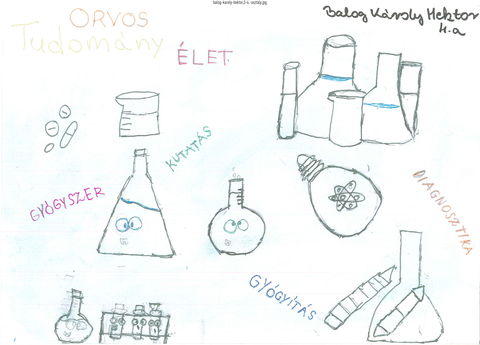 balog-karoly-hektor,3-4.-osztaly.jpg
ORVOS
Tudomány
ÉLET
Balog Károly Hektor
4.a
KUTATÁS
GYÓGYSZER
DIAGNOSZTIKA
GYÓGYÍTÁS